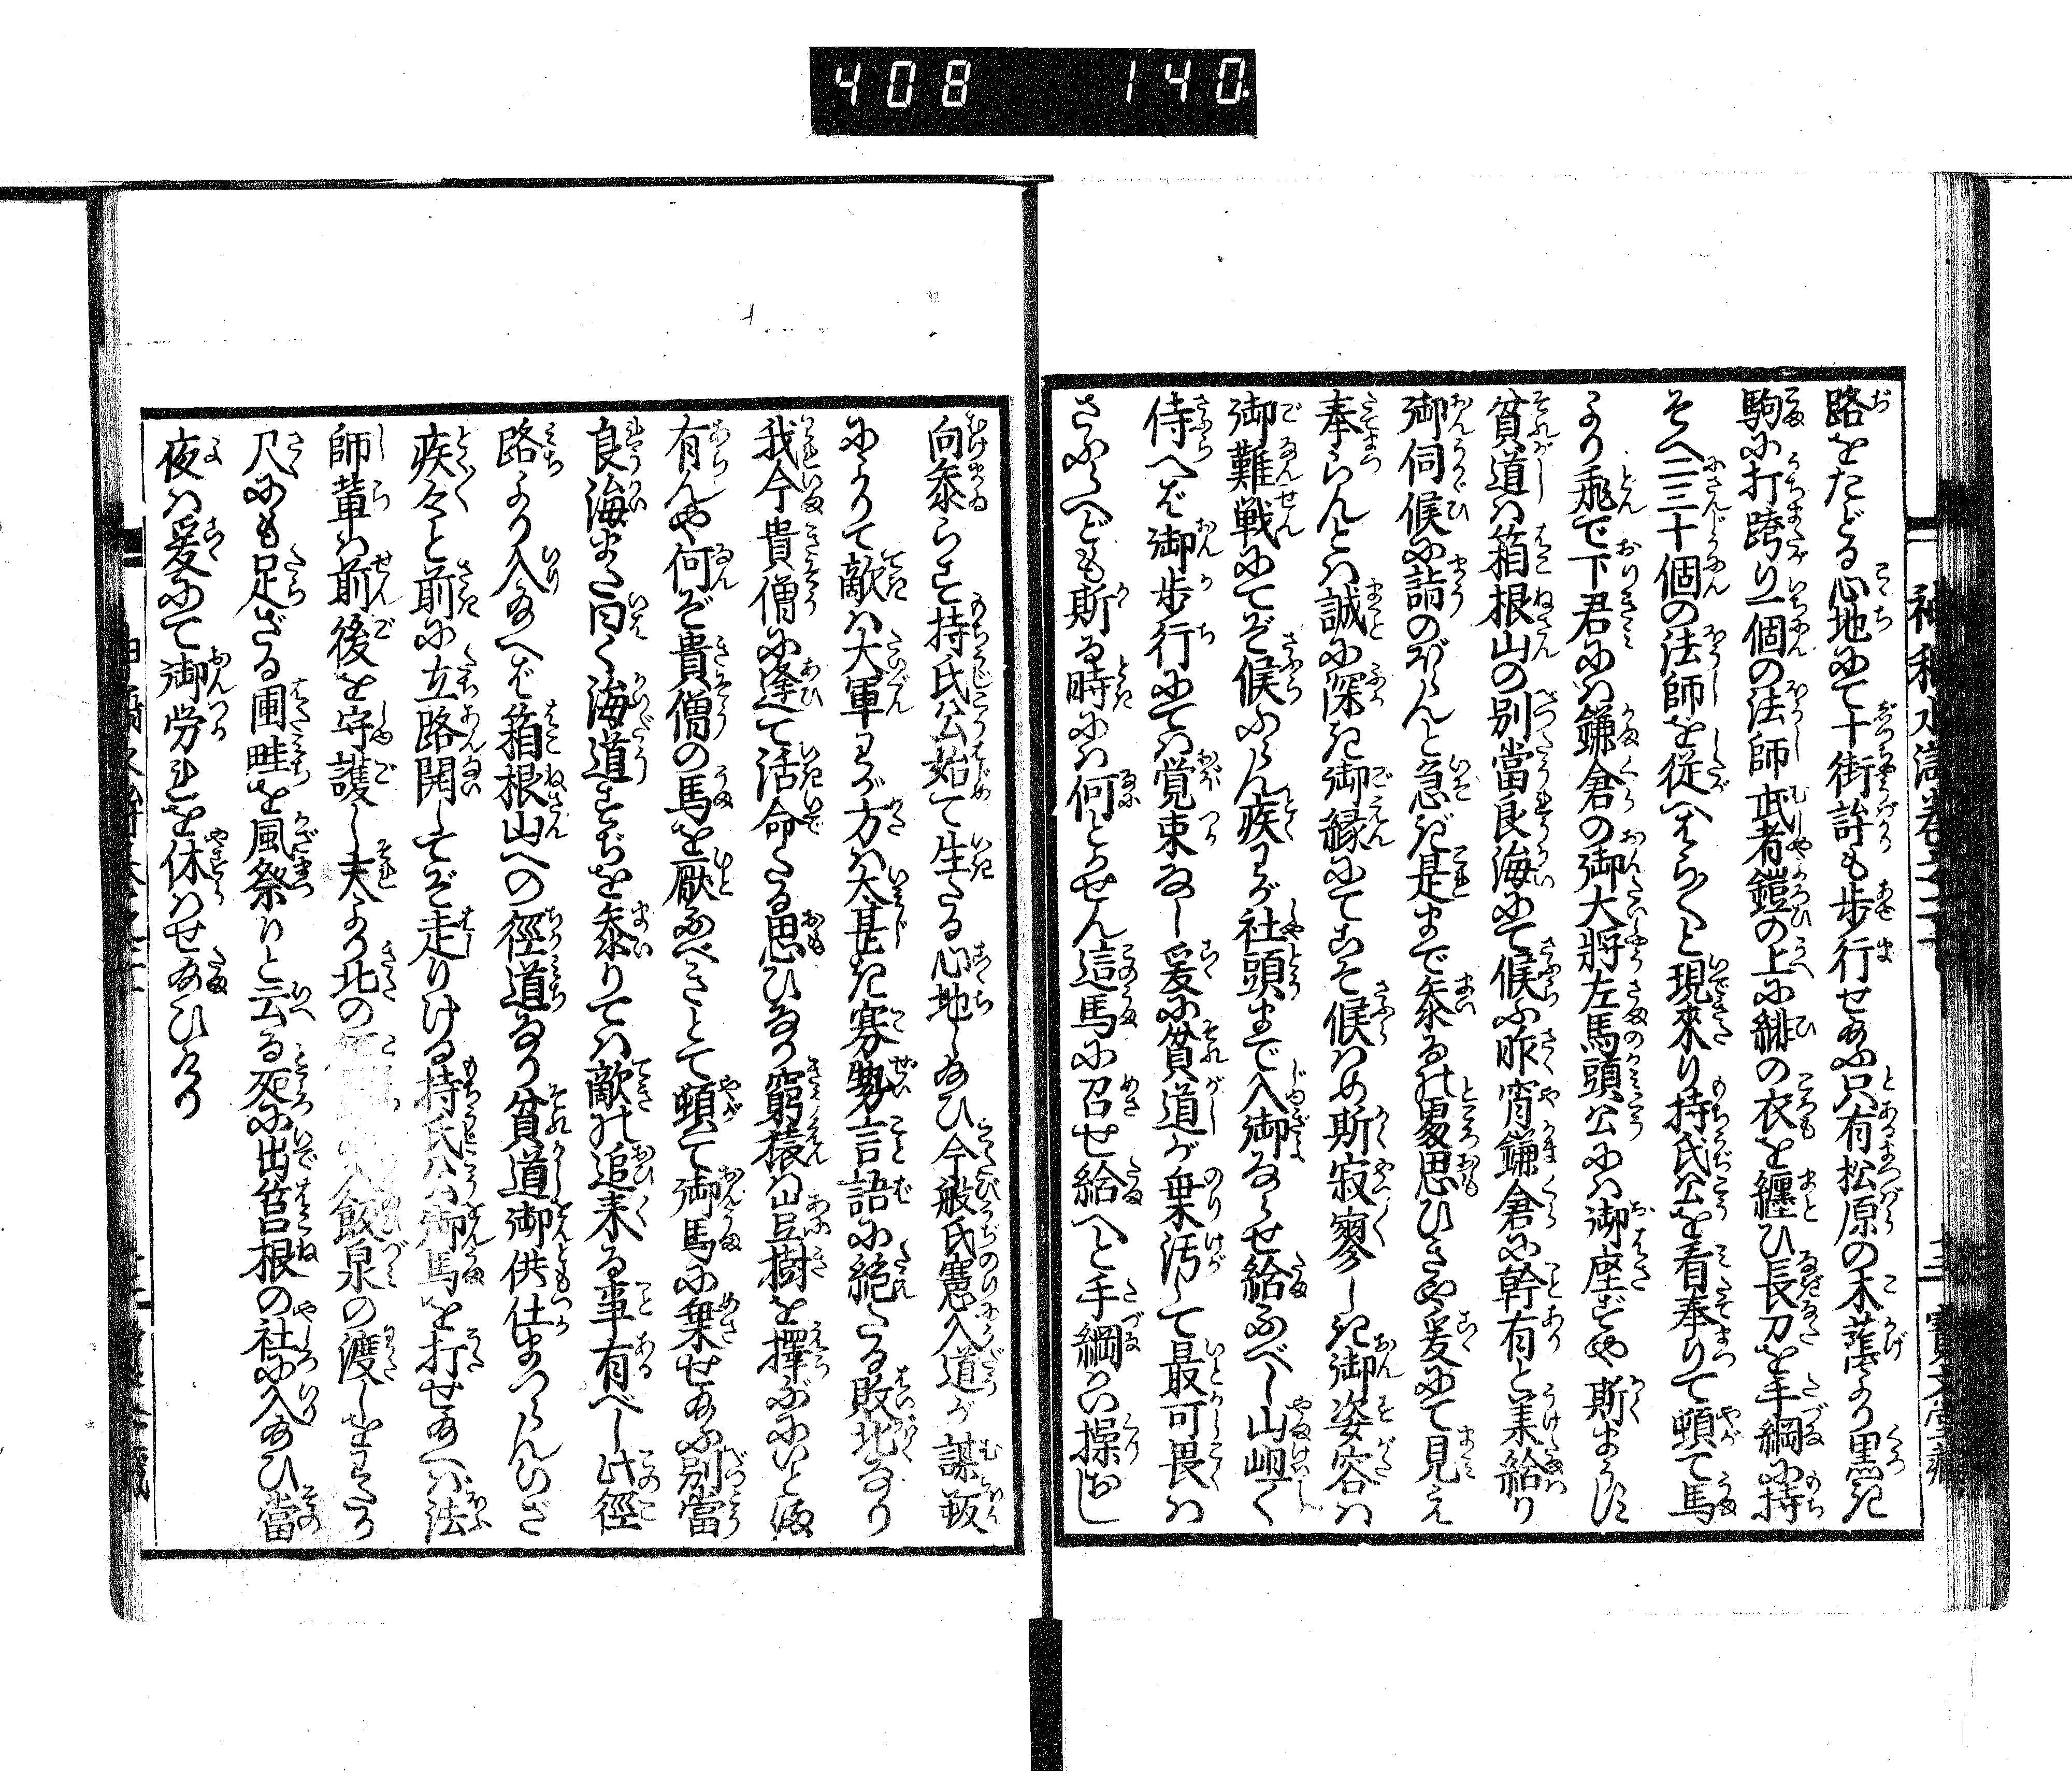 408 140.
路をたどる心地にて十街許も歩行せ給ふ只有松原の木蔭より黒き
駒に打跨り一個の法師武者鎧の上に緋の衣を纏ひ長刀を手綱に持
そへ二三十個の法師を従へばら〳〵と現來り持氏公を看奉りて頓て馬
より飛で下君にハ鎌倉の御大將左馬頭公にハ御座ずや斯まうす
貧道ハ箱根山の別當良海にて候ふ昨宵鎌倉に幹有と業給り
御伺候に詣のぼらんと急ぎ是まで参るの処思ひきや爰にて見え
奉らんとハ誠に深き御縁にてこそ候はめ斯寂寥しき御姿容ハ
御難戦にてぞ候ふらん疾わが社頭まで入御ならせ給ふべし山岨く
侍へば御歩行にてハ覚束なし爰に貧道が乗汚して最可畏ハ
さふらへども斯る時にハ何とかせん這馬に召せ給へと手綱かい操おし
向参らす持氏公始て生たる心地し給ひ今般氏憲入道が謀叛
によりて敵ハ大軍わが方ハ太甚き寡勢言語に絶たる敗北なり
我今貴僧に逢て活命たる思ひなり窮猿ハ豈樹を擇ぶにいとま
有んや何ぞ貴僧の馬を厭ふべきとて頓て御馬に乗せ給ふ別當
良海また曰く海道すぢを参りてハ敵の追来る事有べし此徑
路より入給へば箱根山への徑道なり貧道御供仕まつらんいざ
疾々と前に立路開してぞ走りける持氏公御馬を打せ給へバ法
師輩ハ前後を守護し夫より北の入飯泉の渡しをわたり
尺にも足ざる圃畦を風祭りと云る処に出筥根の社に入給ひ當
夜ハ爰にて御労を休ハせ給ひけり